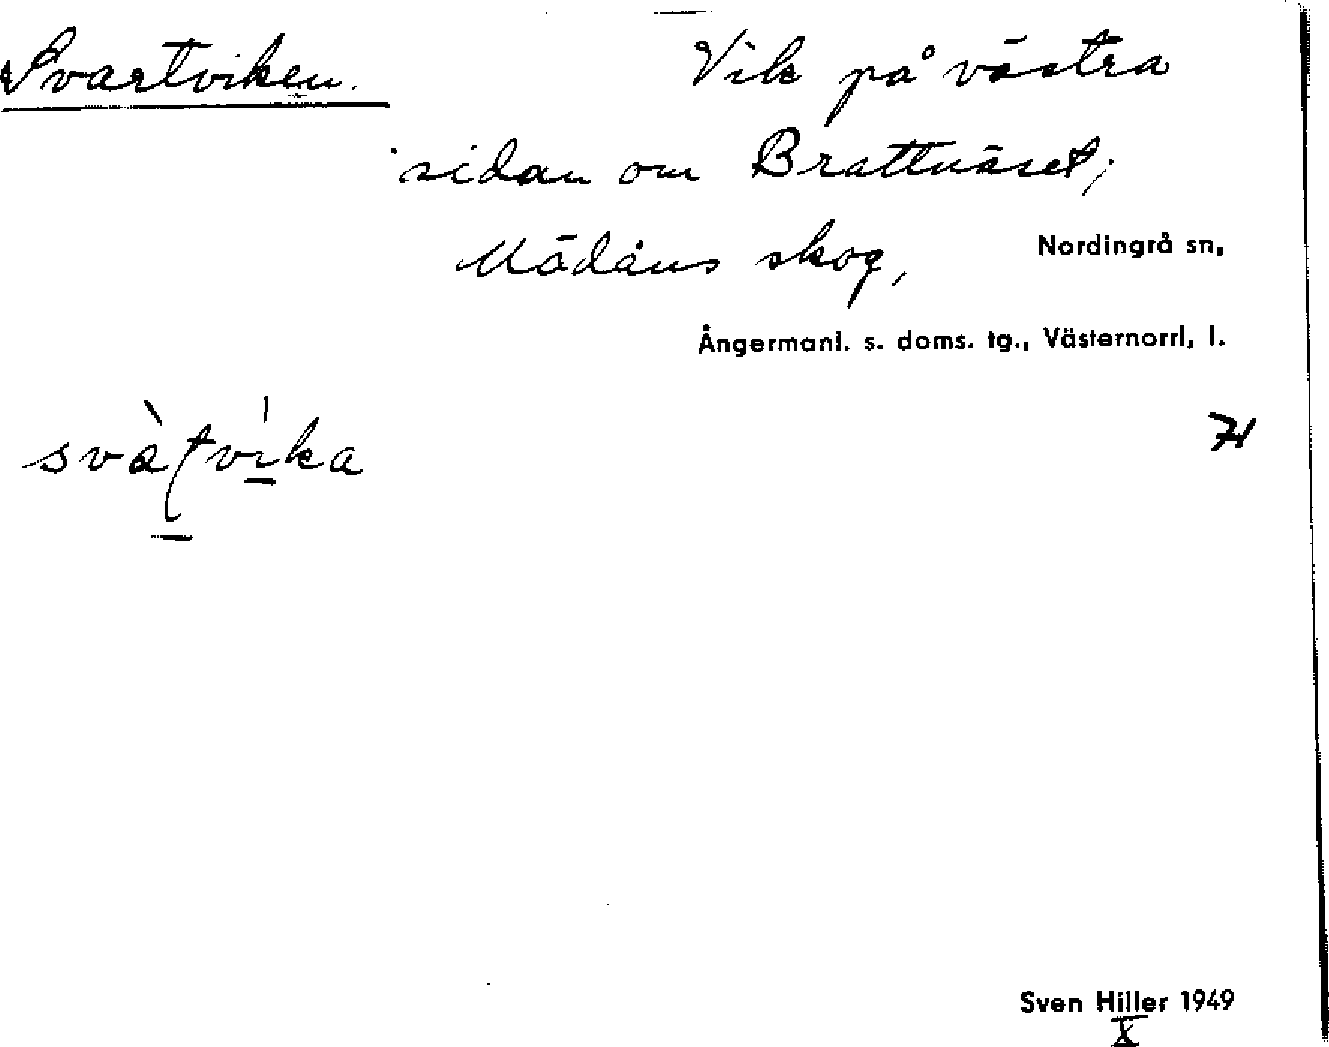 Svartviken. Vik på västra
sidan om Brattnäset;
Mädans skog, Nordingrå sn,
Ångermanl. s. doms. tg., Västernorrl. l.
svàtvika
Sven Hiller 1949
X